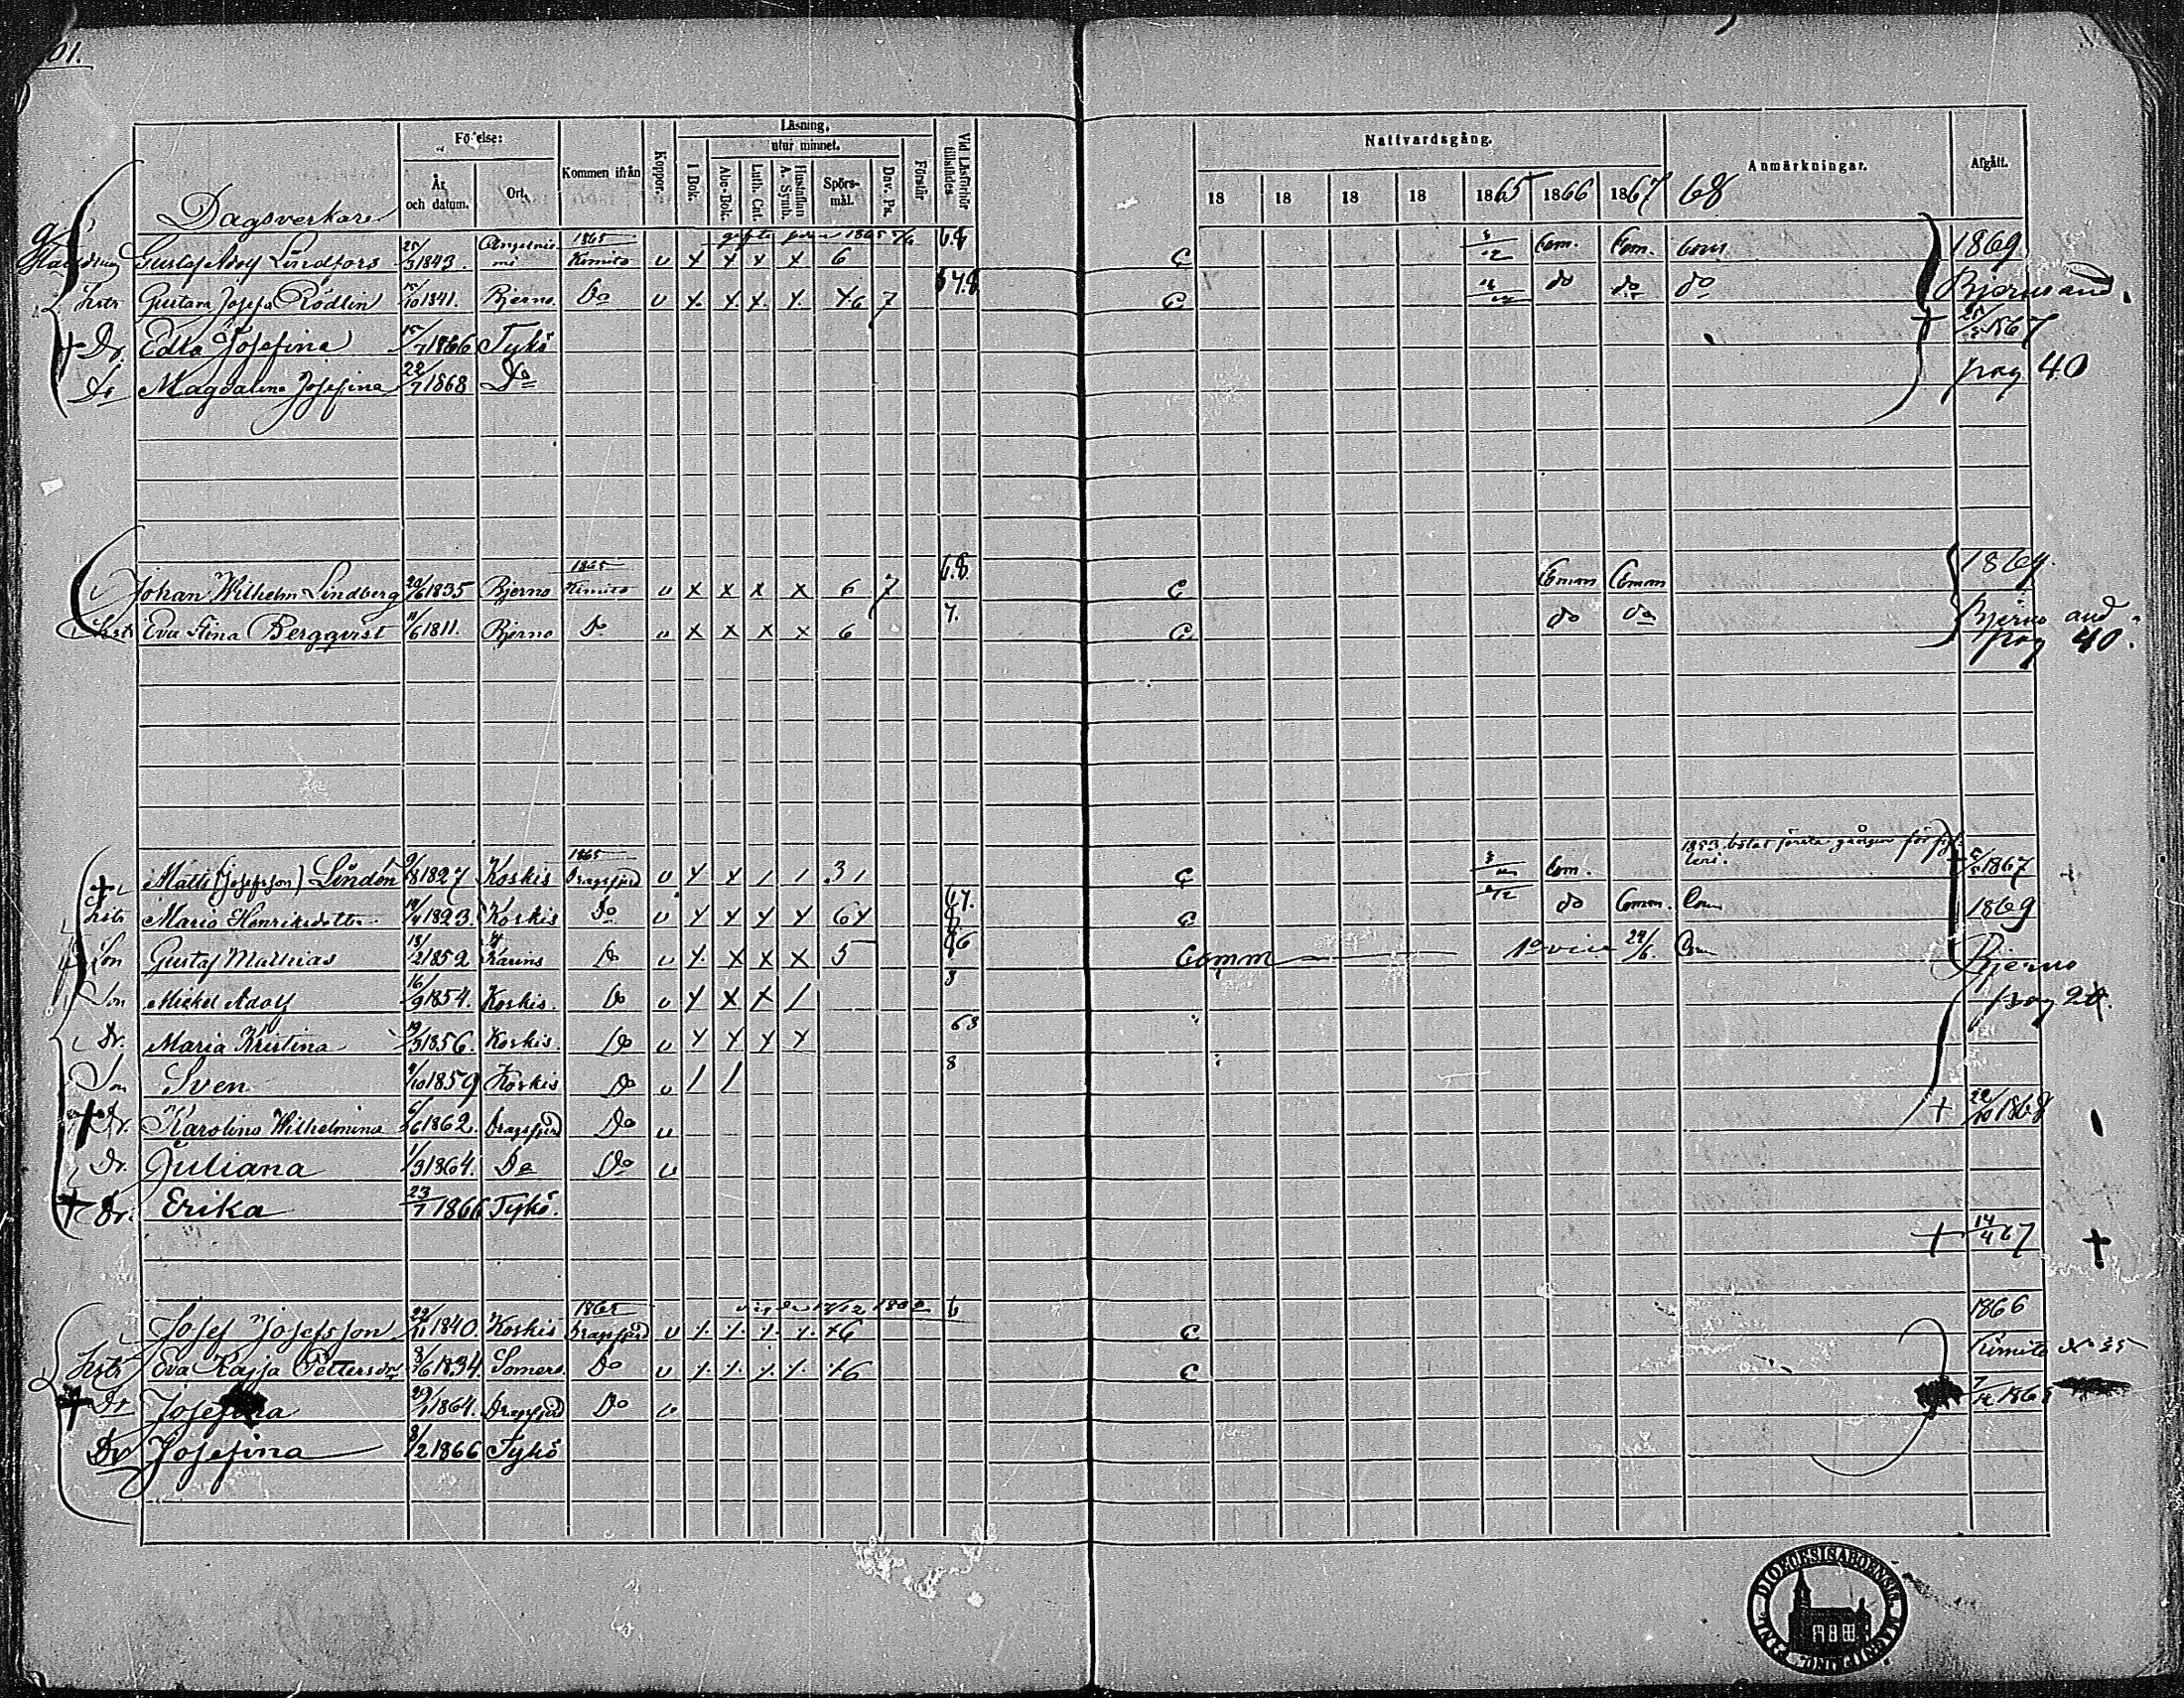 01.
Födelse:
Läsning,
utur minnet.
År och datum.
Ort.
Kommen ifrån
Koppor.
I Bok.
Abc-Bok.
Luth. Cat.
Hustaflan A. Symb.
Spörsmål.
Dav. Ps.
Förstår
Vid Läsförhör tillstädes
Nattvardsgång.
18 18 18 18 1865 1866 1867 68
Anmärkningar.
Afgått.
Dagsverkare
Gustaf Adolf Lindfors 25/3 1843. 1865 Kimito v x x x x 6 68 C Com. Com. Com 1869
Hstr Gustava Josefa Rödlin 15/10 1841. Bjerno Do v x x x x x6 7 678 C do do do Bjerno and.
† Dr. Edla Josefina 15/7 1866 Tykö † 25/5 1867
Dr Magdalena Josefina 22/7 1868 Do pag 40
Johan Wilhelm Lindberg 20/6 1835 Bjerno 1865 Kimito v x x x x 6 7 68 C Comm Comm 1869.
Hstr Eva Stina Bergqvist 11/6 1811. Bjerno Do v x x x x 6 7. C do do Bjerno and
pag 40.
1853 bötat första gången för
† Matts (Josefsson) Lindén 9/8 1827 Koskis 1865 Dragsfjärd v x x / / 3 / C Com. 1867
Hstr Maria Henriksdotter 14/4 1823. Koskis Do v x x x x 6x 67 C do Comm. Com 1869
Son Gustaf Mathias 13/2 1852 Karins Do v x x x x 5 Comm 1o vice 24/6. Com Bjerno
Son Mickel Adolf 16/9 1854. Koskis. Do v x x x / 8 pag
Dr. Maria Kristina 19/3 1856. Koskis. Do v x x x x 63
Son Sven 9/10 1859 Koskis Do v / / 8
† Dr. Karolina Wilhelmina 6/6 1862. Dragsfjärd Do v † 22/10 1868
Dr. Juliana 1/3 1864. Do Do v
† Dr. Erika 23/7 1866 Tykö.
† 14/4 67 †
Josef Josefsson 22/11 1840. Koskis 1865 Dragsfjärd v x x x x x6 6 C 1866
Hstr Eva Kajsa Pettersdr 3/6 1834. Somero. Do v x x x x x6 C Kimito No 35
† Dr Josefina 29/1 1864. Dragsfjärd Do v 1865
Dr Josefina 3/2 1866 Tykö